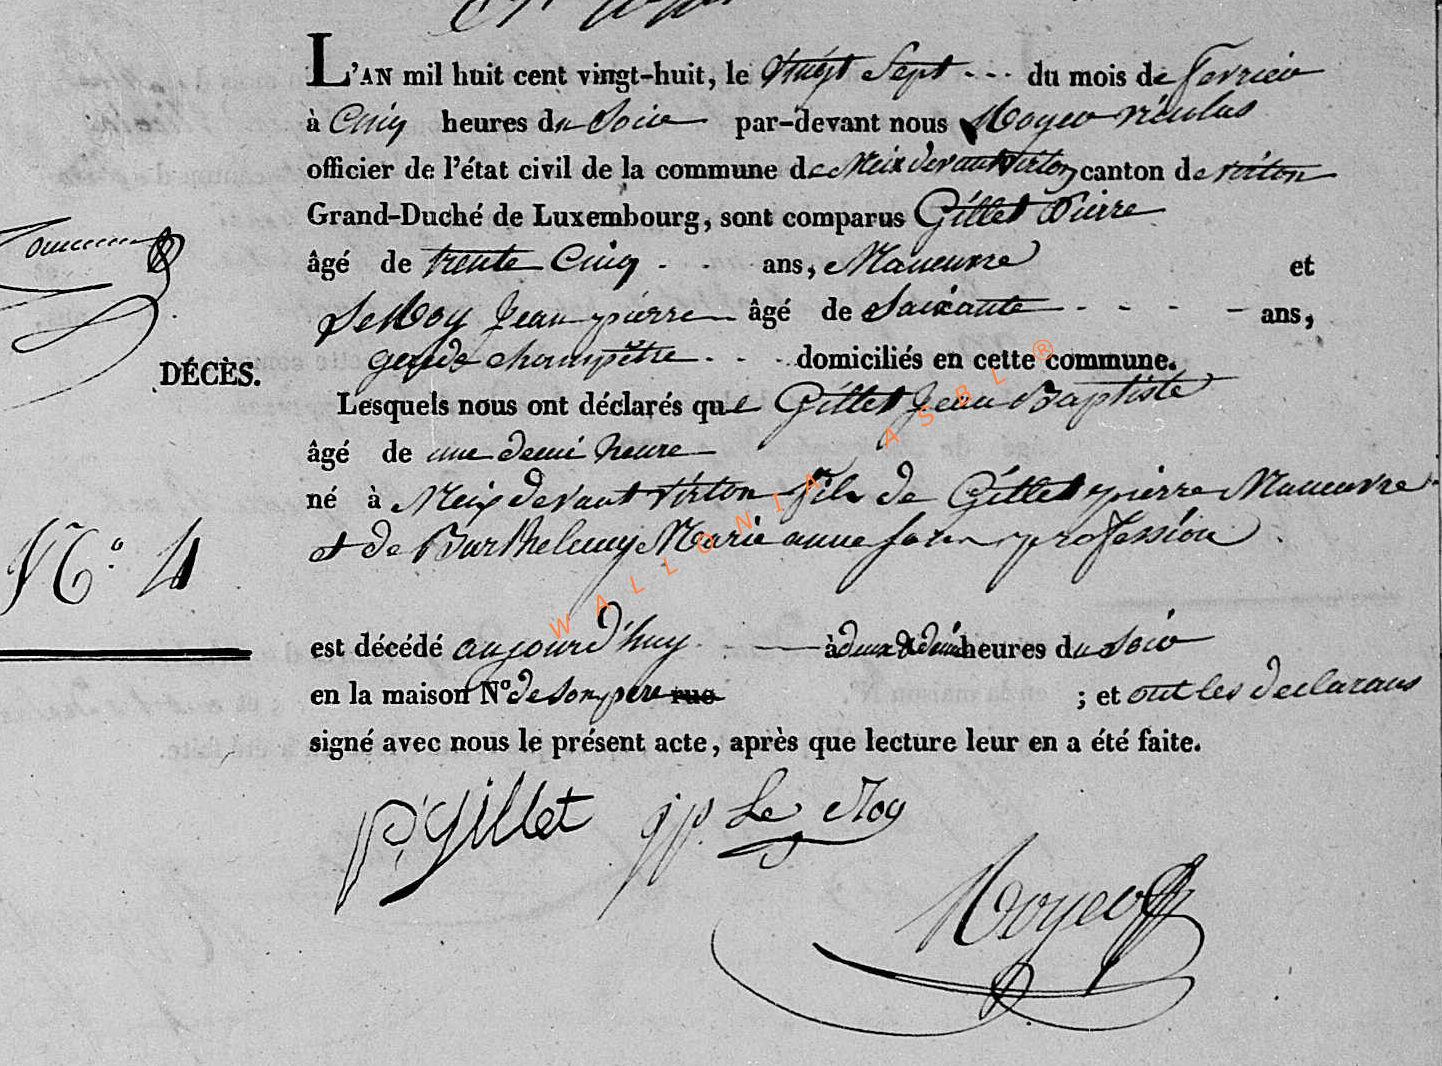 L'AN mil huit cent vingt-huit, le vingt Sept - - - du mois de fevrier
à Cinq heures du Soir par-devant nous Noyer nicolas
officier de l'état civil de la commune de Meix devant Virton canton de virton
Grand-Duché de Luxembourg, sont comparus Gillet Pierre
âgé de trente Cinq - - ans, Maneuvre et
Le Roy Jean pierre âgé de Soixante - - - - ans,
garde champêtre - - - domiciliés en cette commune.
DÉCÈS.
Lesquels nous ont déclarés que Gillet Jean Baptiste
âgé de une demi heure
né à Meix devant virton fils de Gillet pierre Maneuvre
et de Barthelemy Marie anne profession
N° 4
est décédé aujourd'huy à deux & demi heures du Soir
en la maison N° de Son pere rue ; et ont les declarans
signé avec nous le présent acte, après que lecture leur en a été faite.
P. Gillet jp. Le Roy
Noyer
WALLONIA ASBL ®